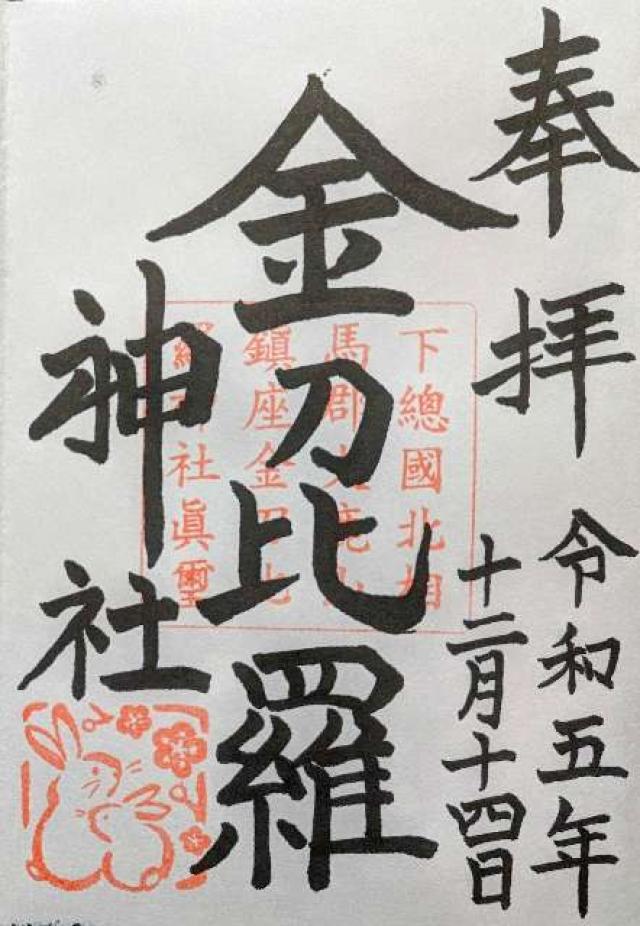 奉拝
令和五年
十二月十四日
金刀比羅
神社
下總國北相
馬郡大鹿山
鎮座金刀比
羅神社眞璽